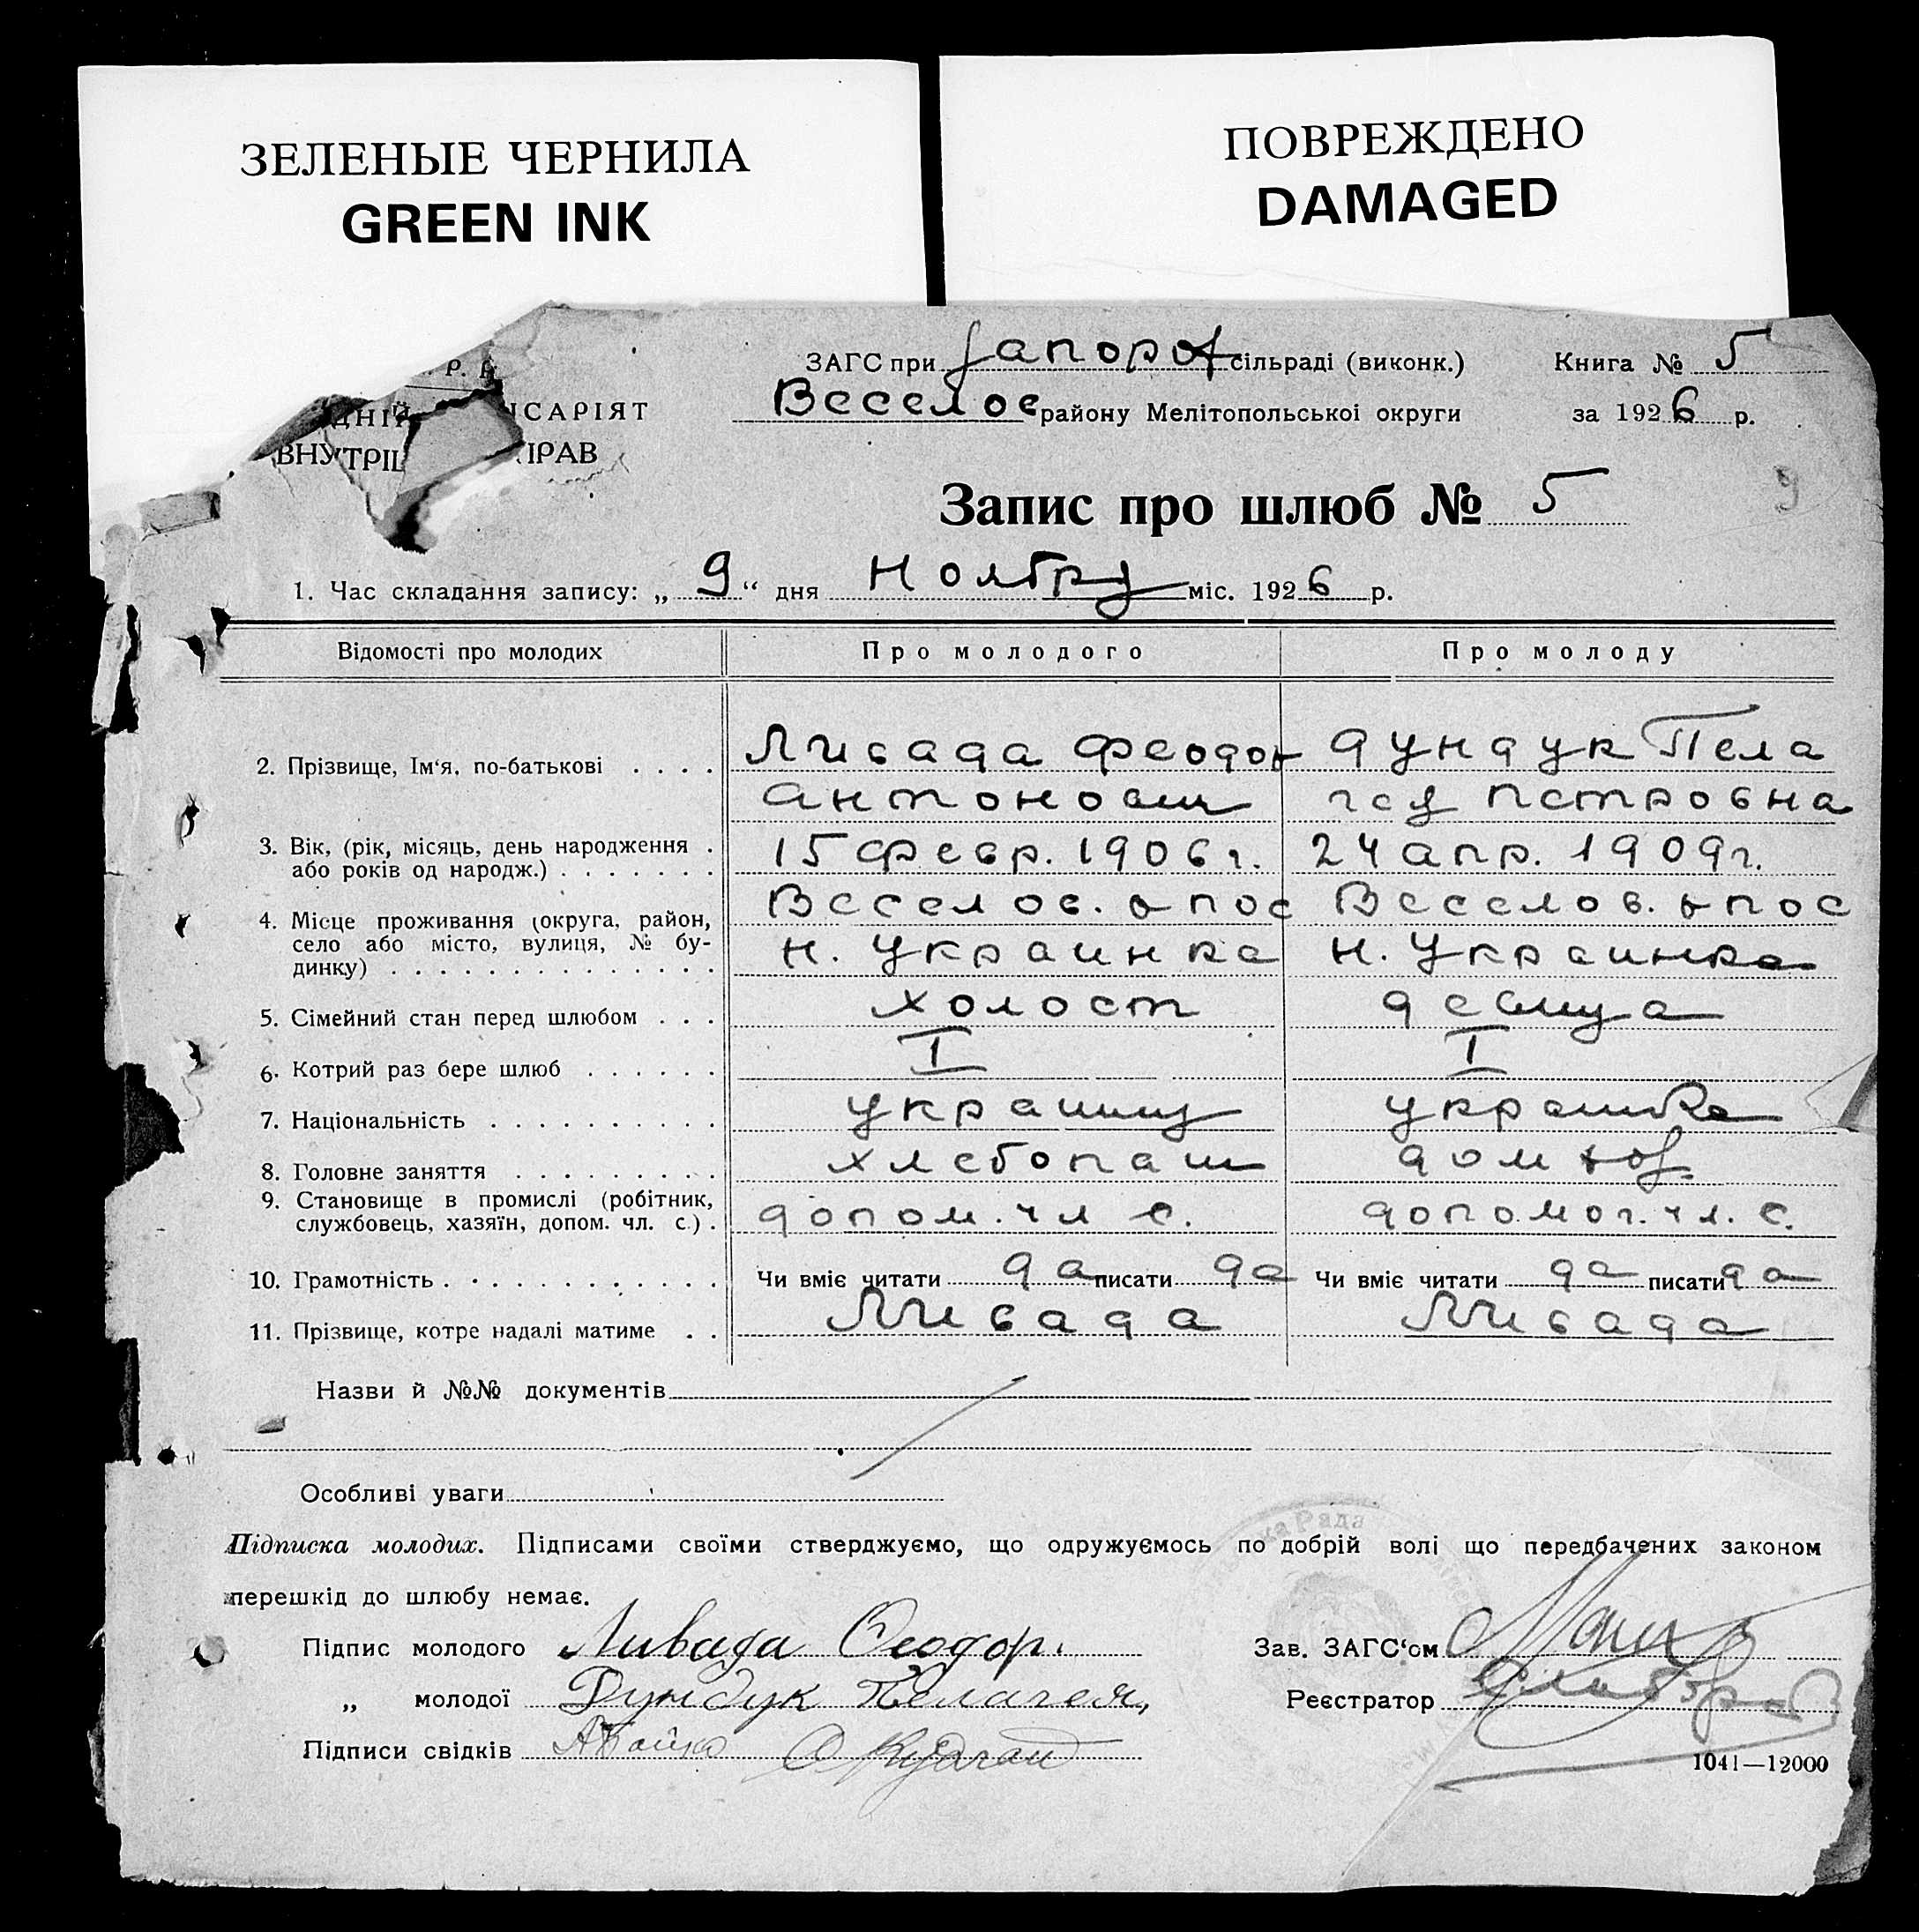 ЗЕЛЕНЫЕ ЧЕРНИЛА
GREEN INK
ПОВРЕЖДЕНО
DAMAGED
ЗАГС при Запорож сільраді (виконк.) Книга № 5
Веселов району Мелітопольської округи за 1926 р.
ВНУТРІШ ПРАВ
Запис про шлюб № 5
1. Час складання запису: „ 9 “ дня ноября міс. 1926 р.
Відомості про молодих Про молодого Про молоду
2. Прізвище, Ім'я, по-батькові . . . . Ливада Феодор Дундук Пела
Антонович гея Петровна
3. Вік, (рік, місяць, день народження . 15 февр. 1906 г. 24 апр. 1909 г.
або років од народж.) . . . . . . .
Веселов. Веселов.
4. Місце проживання (округа, район,
село або місто, вулиця, № бу- Н. Украинка Н. Украинка
динку) . . . . . . . . . . . . . .
5. Сімейний стан перед шлюбом . . . холост девица
6. Котрий раз бере шлюб . . . . . . I I
7. Національність . . . . . . . . . . украинец украинка
8. Головне заняття . . . . . . . . . хлебопаш дом хоз.
9. Становище в промислі (робітник,
службовець, хазяїн, допом. чл. с.) . допом. чл с. допомог. чл. с.
10. Грамотність . . . . . . . . . . . . Чи вміє читати да писати да Чи вміє читати да писати да
11. Прізвище, котре надалі матиме . . Ливада Ливада
Назви й №№ документів
Особливі уваги
Підписка молодих. Підписами своїми стверджуємо, що одружуємось по добрій волі що передбачених законом
перешкід до шлюбу немає.
Підпис молодого Ливада Феодор. Зав. ЗАГС'ом
„ молодої Дундук Пелагея, Реєстратор
Підписи свідків
1041—12000